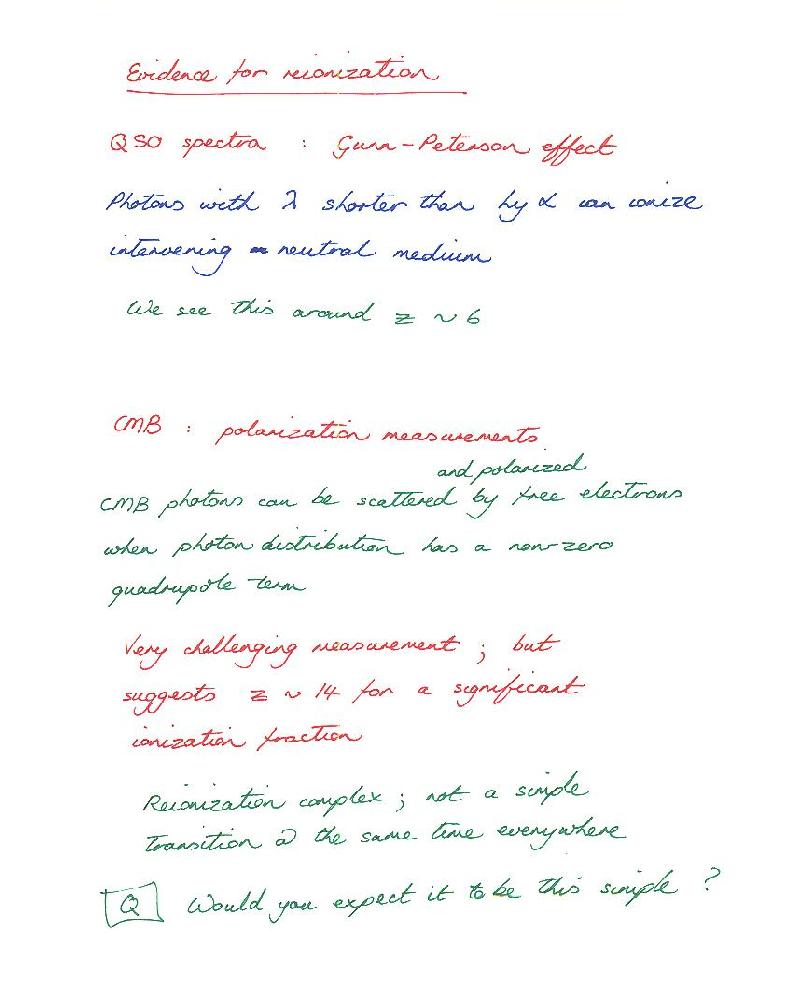 Evidence for reionization
QSO spectra : Gunn-Peterson effect
Photons with λ shorter than Ly α can ionize
intervening neutral medium
We see this around z ~ 6
CMB : polarization measurements
and polarized
CMB photons can be scattered by free electrons
when photon distribution has a non-zero
quadrupole term
Very challenging measurement ; but
suggests z ~ 14 for a significant
ionization fraction
Reionization complex ; not a simple
transition @ the same time everywhere
Q Would you expect it to be this simple ?